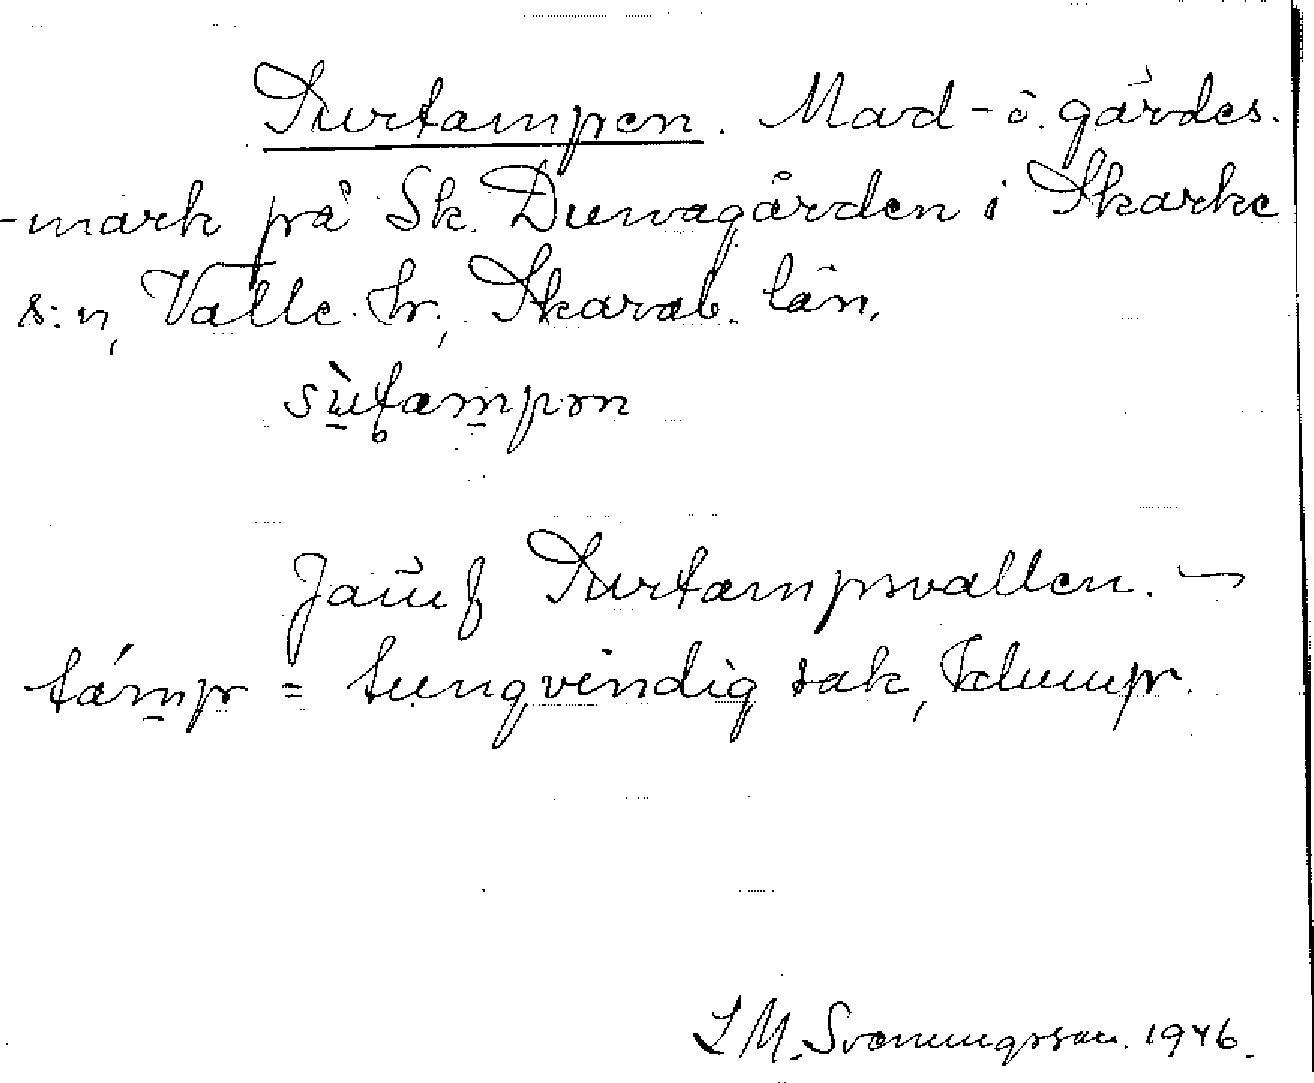 Surtampen. Mad- o. gärdes-
-mark på Sk. Duvagården i Skärke
s:n, Valle hr, Skarab. län.
Jämf Surtampsvallen. –
támp = tungvindig sak, klump.
L M. Svenungsson. 1946.